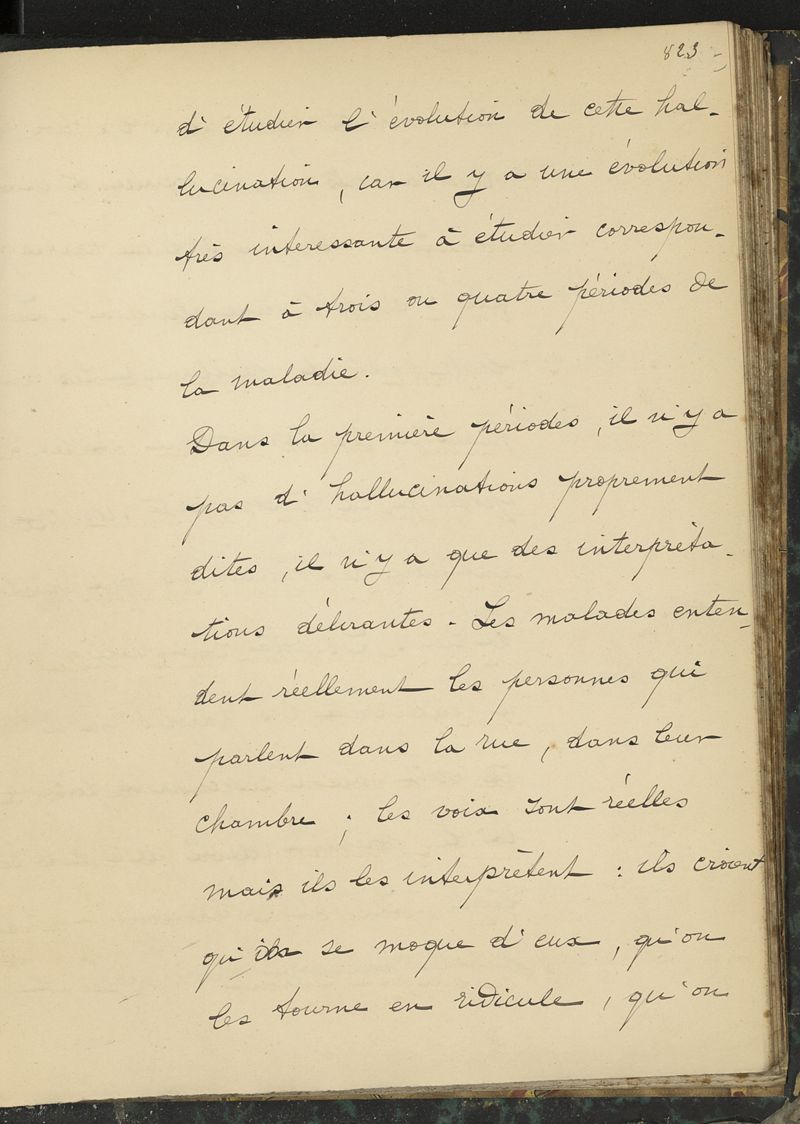 823
d'étudier l'évolution de cette hal-
lucination, car il y a une évolution
très interessante à étudier correspon-
dant à trois ou quatre périodes de
la maladie.
Dans la première périodes, il n'y a
pas d'hallucinations proprement
dites, il n'y a que des interpréta-
tions délirantes. Les malades enten-
dent réellement les personnes qui
parlent dans la rue, dans leur
chambre ; les voix sont réelles
mais ils les interprètent : ils croient
qu' se moque d'eux, qu'on
les tourne en ridicule, qu'on